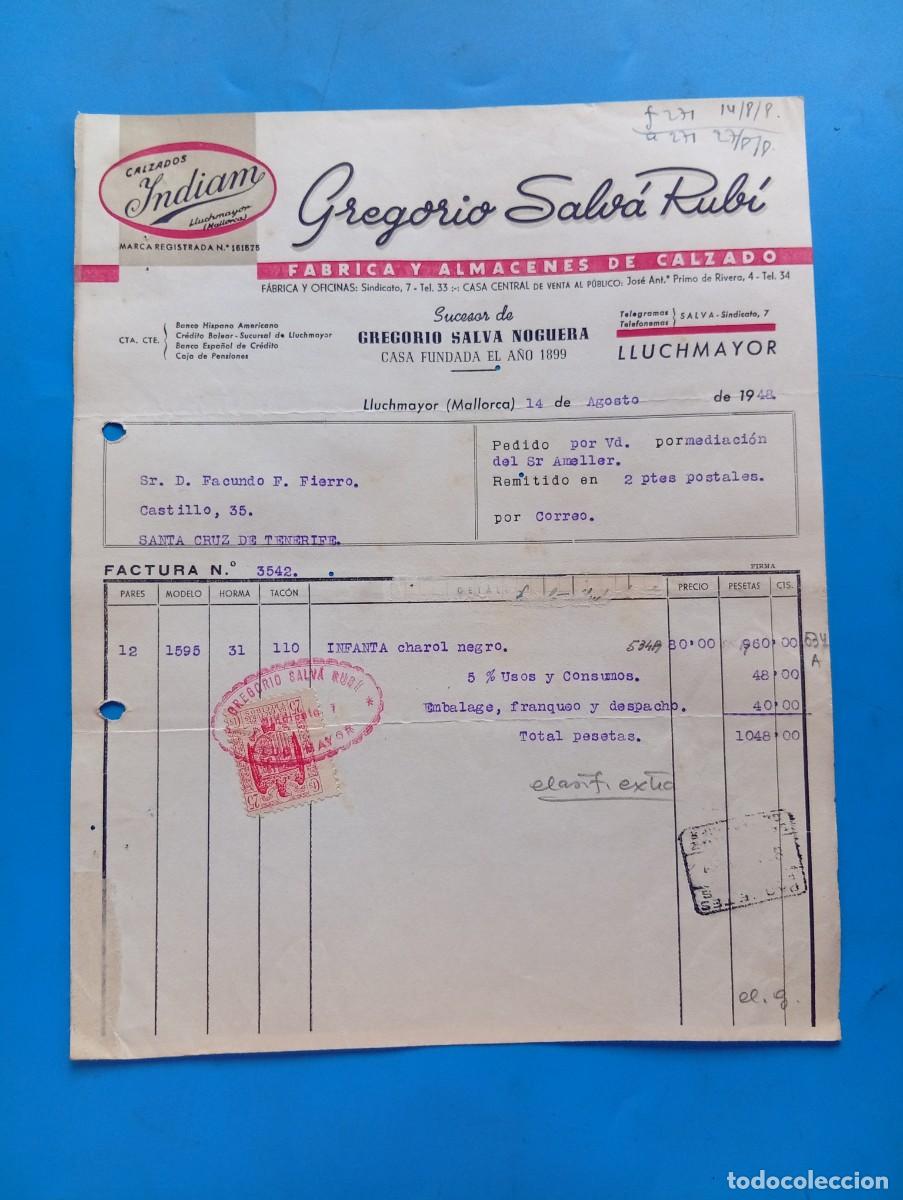 f 271 14/8/8.
a 271 27/8/8.
CALZADOS
Indiam
Lluchmayor
(Mallorca)
MARCA REGISTRADA N.º 161575
Gregorio Salvá Rubí
FABRICA Y ALMACENES DE CALZADO
FÁBRICA Y OFICINAS: Sindicato, 7 - Tel. 33 :-: CASA CENTRAL DE VENTA AL PÚBLICO: José Ant.º Primo de Rivera, 4 - Tel. 34
CTA. CTE.
Banco Hispano Americano
Crédito Balear - Sucursal de Lluchmayor
Banco Español de Crédito
Caja de Pensiones
Sucesor de
GREGORIO SALVA NOGUERA
CASA FUNDADA EL AÑO 1899
Telegramas
Telefonemas
SALVA - Sindicato, 7
LLUCHMAYOR
Lluchmayor (Mallorca) 14 de Agosto de 1948.
Sr. D. Facundo F. Fierro.
Castillo, 35.
SANTA CRUZ DE TENERIFE.
Pedido por Vd. pormediación
del Sr Ameller.
Remitido en 2 ptes postales.
por Correo.
FACTURA N.º 3542.
FIRMA
PARES MODELO HORMA TACÓN DETALLE PRECIO PESETAS CTS.
12 1595 31 110 INFANTA charol negro. 534A 80'00 960'00 534
A
5 % Usos y Consumos. 48'00
Embalage, franqueo y despacho. 40'00
Total pesetas. 1048'00
GREGORIO SALVÁ RUBÍ
Sindicato 7
LLUCHMAYOR
25
25
clasif. extra
el. g.
todocoleccion